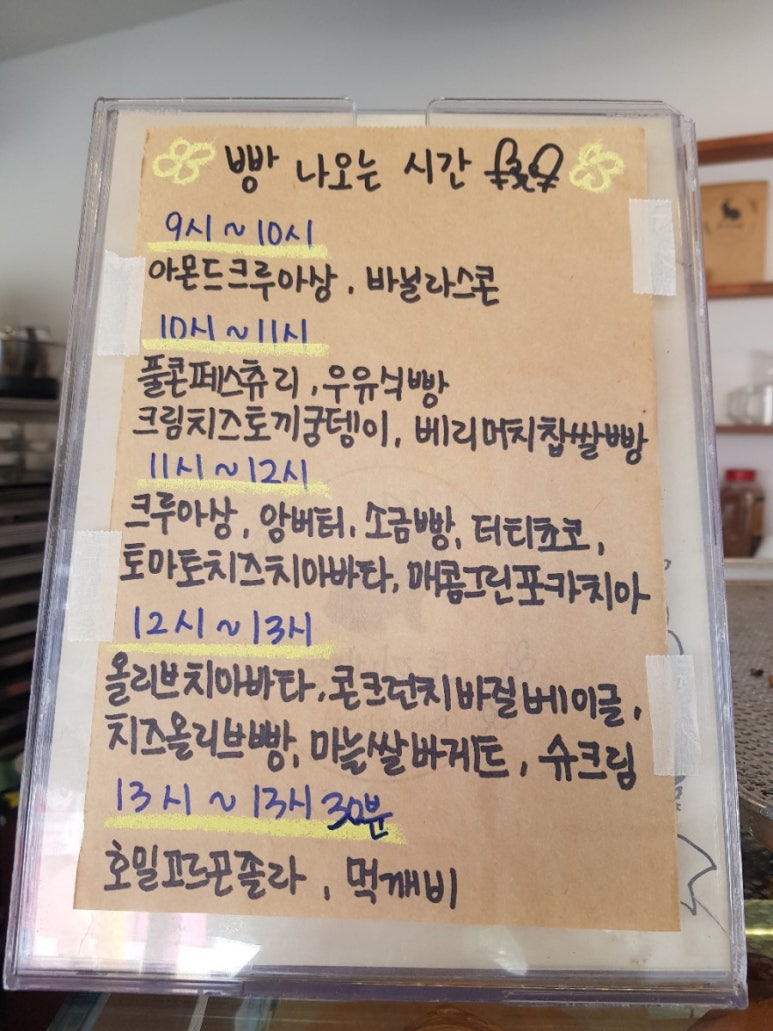 빵 나오는 시간
9시 ~ 10시
아몬드크루아상, 바닐라스콘
10시 ~ 11시
풀콘페스츄리, 우유식빵
크림치즈토끼궁뎅이, 베리머치찹쌀빵
11시 ~ 12시
크루아상, 앙버터, 소금빵, 더티쵸코,
토마토치즈치아바타, 매콤그린포카치아
12시 ~ 13시
올리브치아바타, 콘크런치바질베이글,
치즈올리브빵, 마늘쌀바게트, 슈크림
13시 ~ 13시 30분
호밀고르곤졸라, 먹깨비